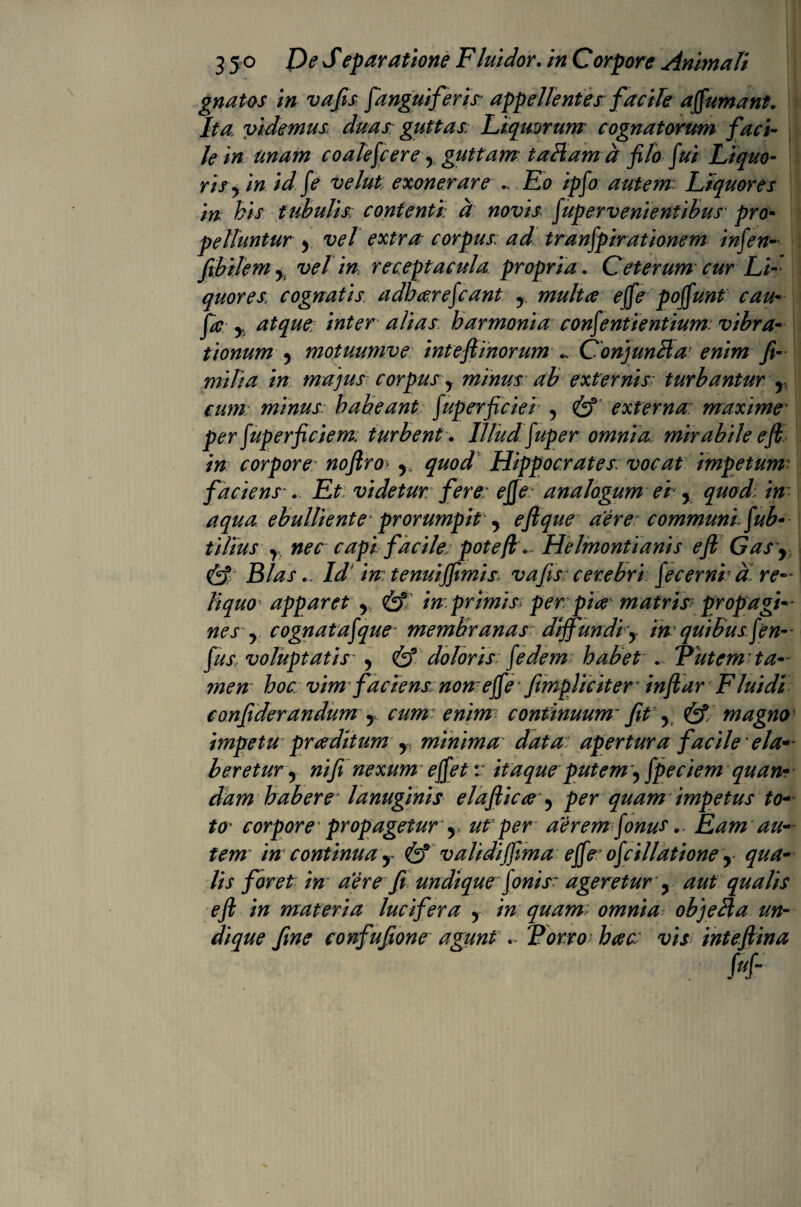 350 De Separatione Fluidor. in Corpore Animali
gnatos in vasis sanguiferis appellentes facile assumant.
Ita videmus duas guttas Liquorum cognatorum faci-
le in unam coalescere, guttam tactam à filo sui Liquo-
ris, in id se velut exonerare. Eo ipso autem Liquores
in his tubulis contenti à novis supervenientibus pro-
pelluntur, vel extra corpus ad transpirationem insen-
sibilem, vel in receptacula propria. Ceterum cur Li-
quores cognatis adhærescant, multæ esse possunt cau-
sæ, atque inter alias harmonia consentientium vibra-
tionum, motuumve intestinorum. Conjuncta enim si-
milia in majus corpus, minus ab externis turbantur,
cum minus habeant superficiei, & externa maxime
per superficiem turbent. Illud super omnia mirabile est
in corpore nostro, quod Hippocrates vocat impetum
faciens. Et videtur fere esse analogum ei, quod in
aqua ebulliente prorumpit, estque aëre communi sub-
tilius, nec capi facile potest. Helmontianis est Gas,
& Blas. Id in tenuissimis vasis cerebri secerni à re-
liquo apparet, & in primis per piæ matris propagi-
nes, cognatasque membranas diffundi, in quibus sen-
sus voluptatis, & doloris sedem habet. Putem ta-
men hoc vim faciens non esse simpliciter instar Fluidi
considerandum, cum enim continuum sit, & magno
impetu præditum, minima data apertura facile ela-
beretur, nisi nexum esset: itaque putem, speciem quan-
dam habere lanuginis elasticæ, per quam impetus to-
to corpore propagetur, ut per aërem sonus. Eam au-
tem in continua, & validissima esse oscillatione, qua-
lis foret in aëre si undique sonis ageretur, aut qualis
est in materia lucifera, in quam omnia objecta un-
dique sine confusione agunt. Porro hæc vis intestina
sus-